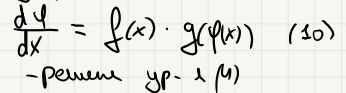 dφ/dx = f(x) · g(φ(x)) (10)
- решение ур-я (4)